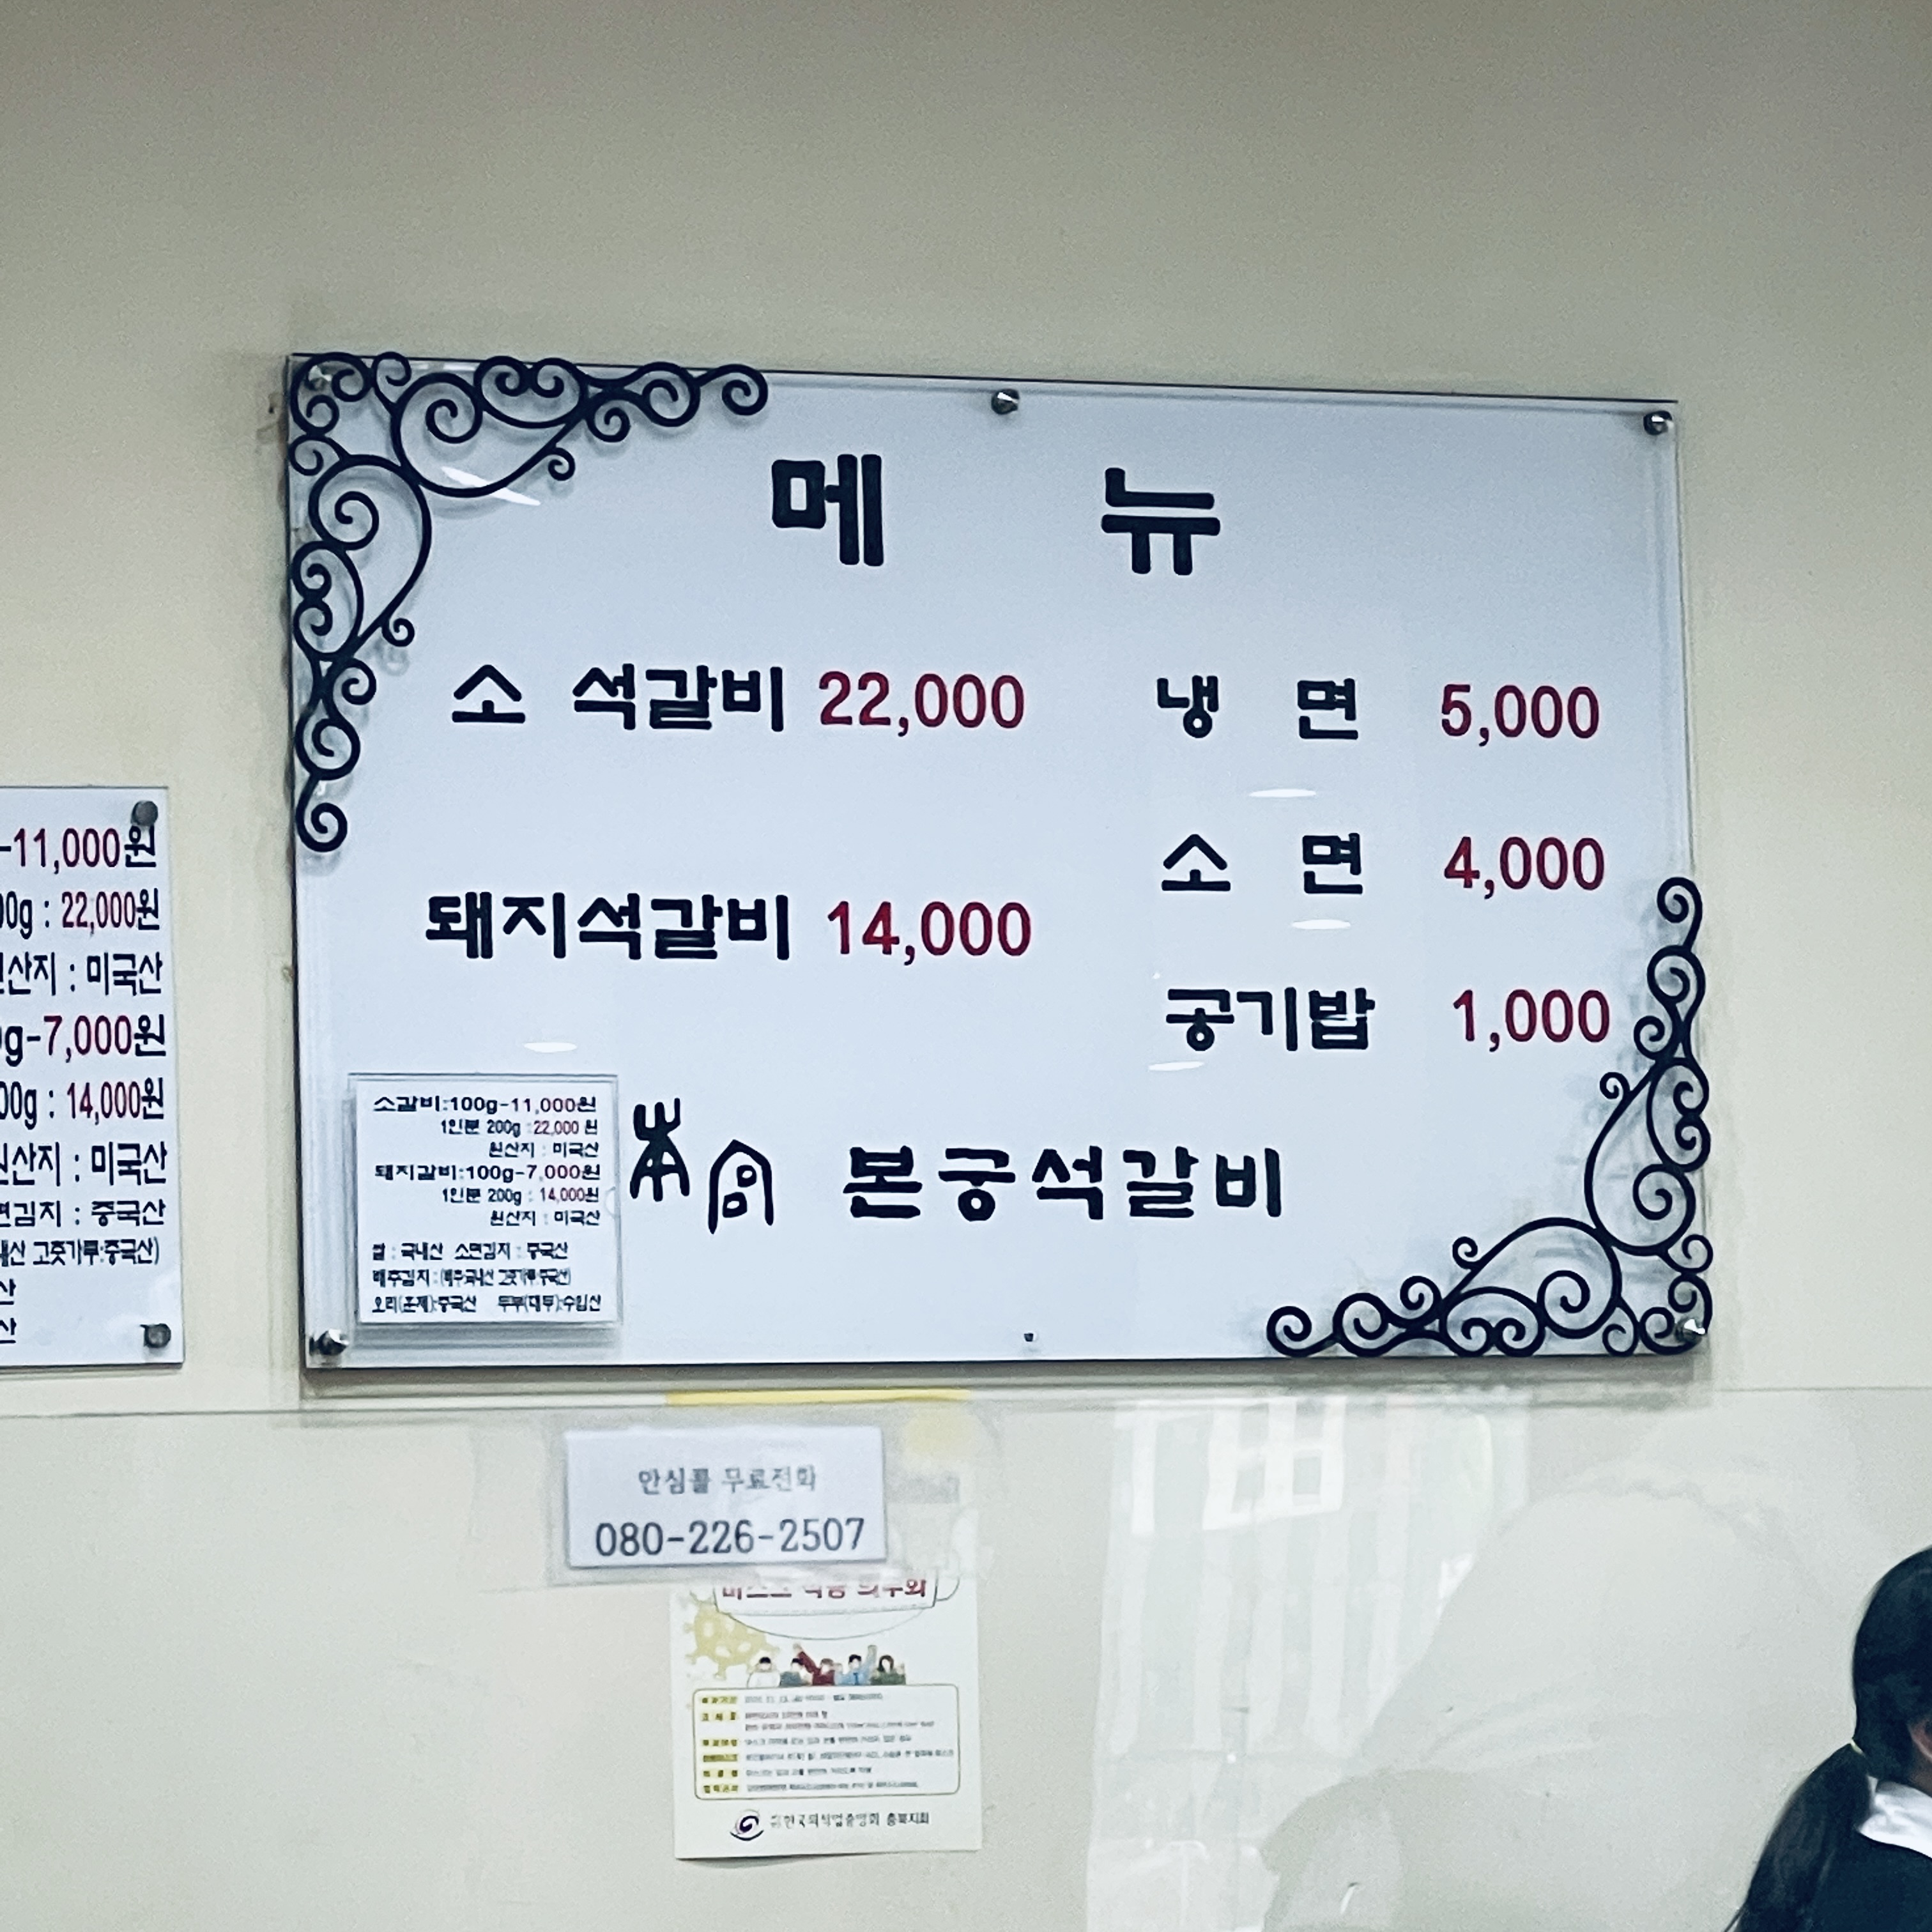 메 뉴
소 석갈비 22,000
돼지석갈비 14,000
냉 면 5,000
소 면 4,000
공기밥 1,000
本宮 본궁석갈비
소갈비:100g-11,000원
1인분 200g : 22,000 원
원산지 : 미국산
돼지갈비:100g-7,000원
1인분 200g : 14,000원
원산지 : 미국산
쌀 : 국내산 소면김지 : 중국산
배추김지 : (배추:국내산 고춧가루:중국산)
오리(훈제):중국산 두부(대두):수입산
-11,000원
00g : 22,000원
원산지 : 미국산
g-7,000원
00g : 14,000원
원산지 : 미국산
면김지 : 중국산
내산 고춧가루:중국산)
산
산
안심콜 무료전화
080-226-2507
마스크 착용 의무화
한국외식업중앙회 충북지회